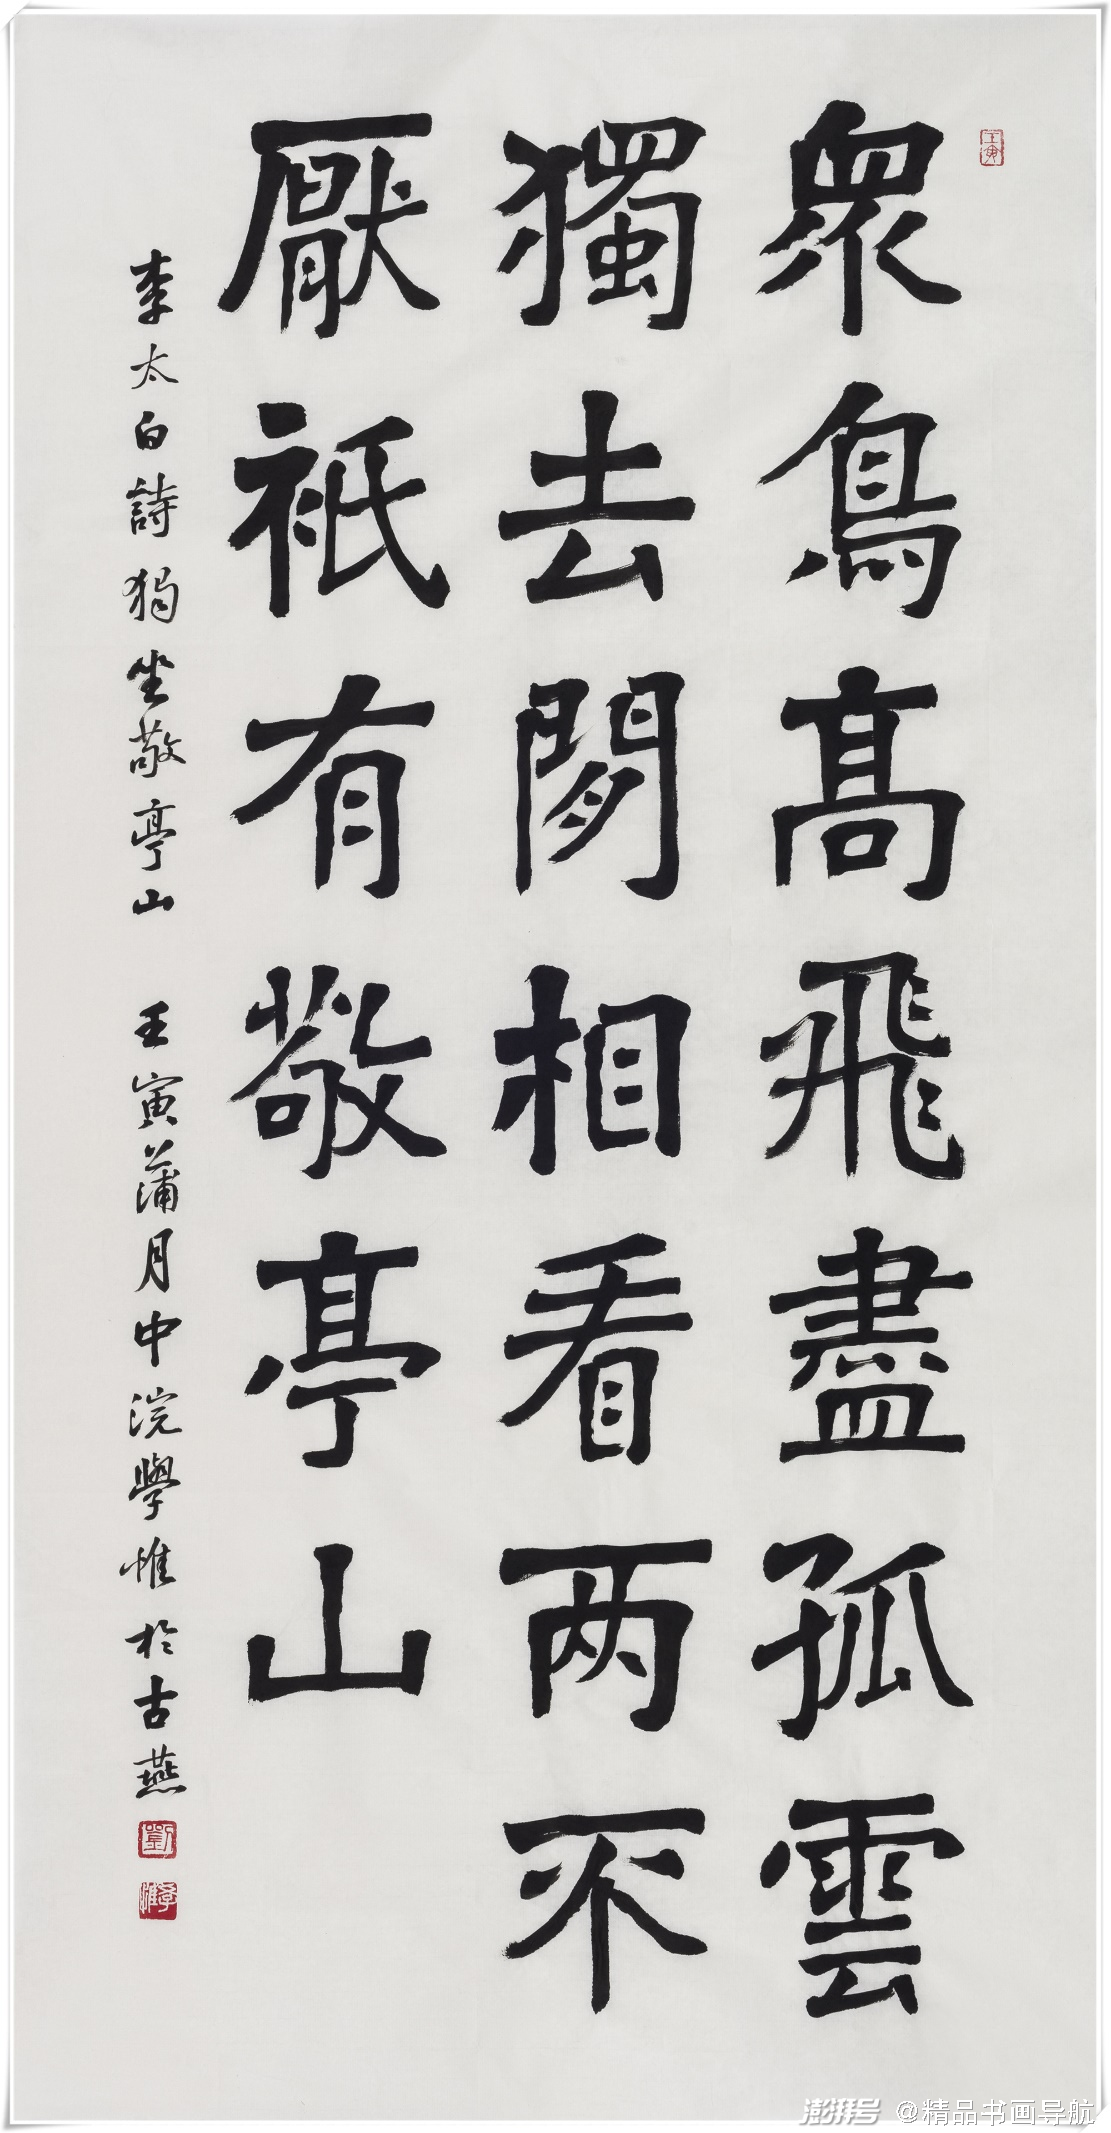 衆鳥高飛盡孤雲
獨去閒相看两不
厭祇有敬亭山
李太白詩獨坐敬亭山 壬寅蒲月中浣學惟於古燕
壬寅
劉
學惟
澎湃号 @精品书画导航